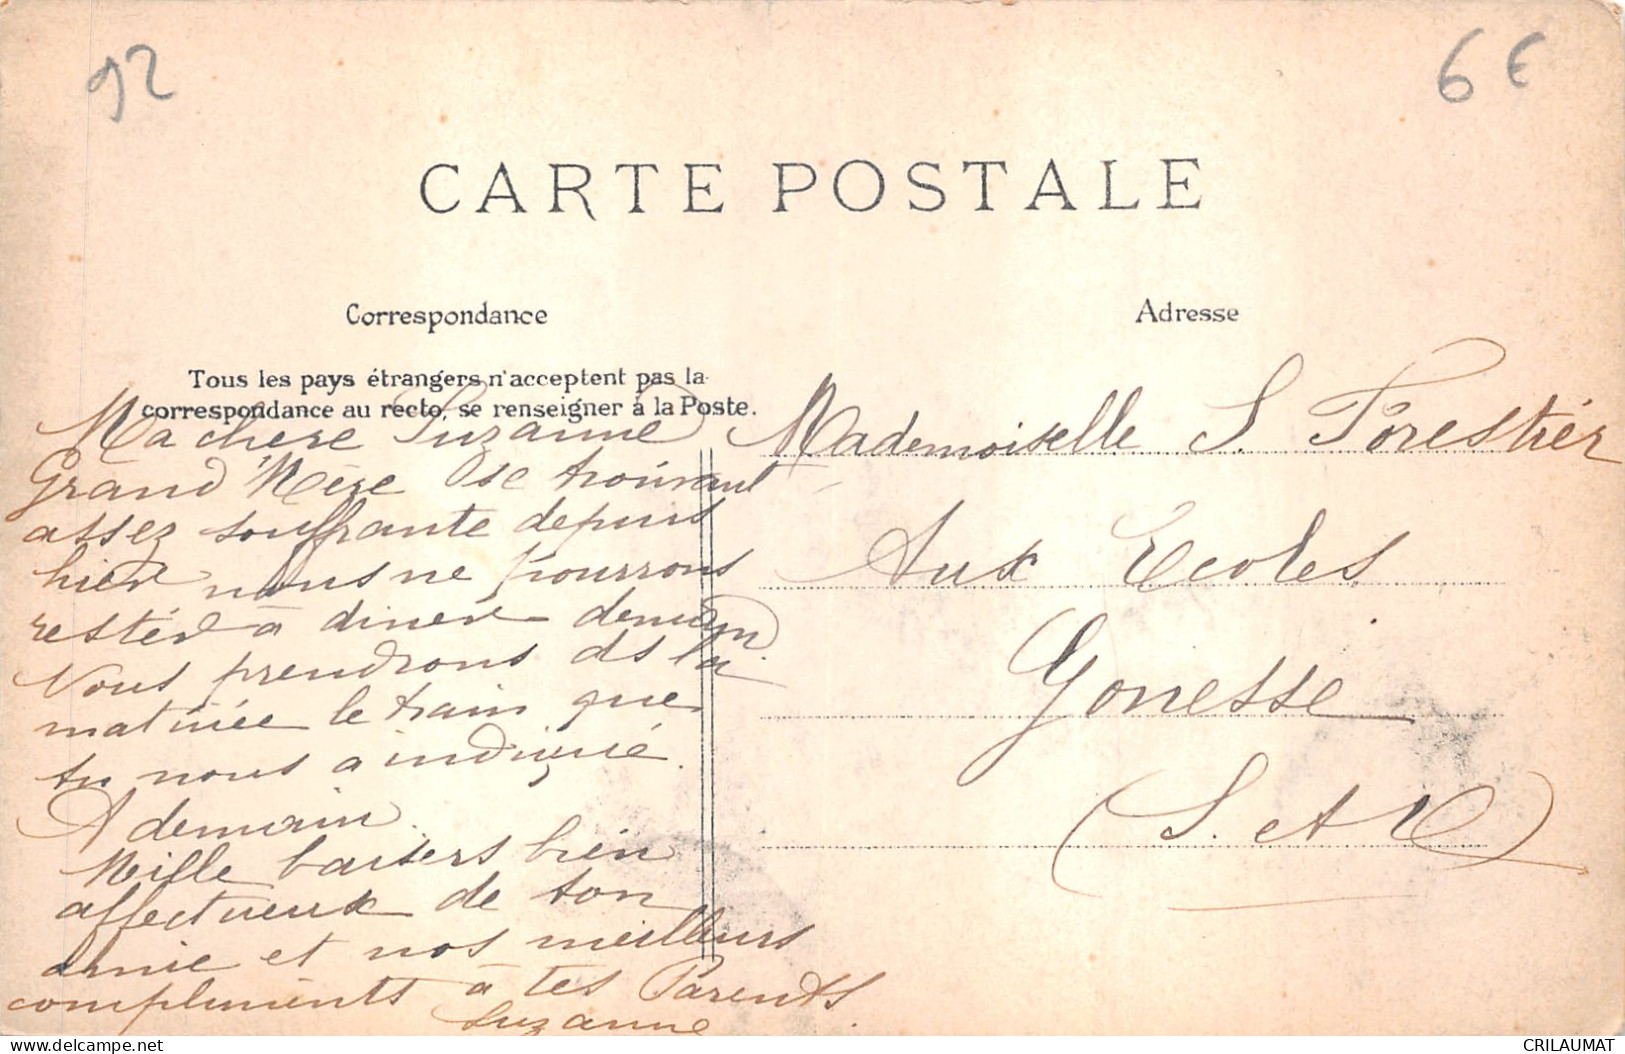 92
6 €
CARTE POSTALE
Correspondance
Tous les pays étrangers n'acceptent pas la
correspondance au recto, se renseigner à la Poste.
Ma chère Suzanne
Grand'Mère se trouvant
assez souffrante depuis
hier nous ne pourrons
rester à diner demain.
Nous prendrons ds la
matinée le train que
tu nous a indiqué.
A demain.
Mille baisers bien
affectueux de ton
amie et nos meilleurs
compliments à tes Parents.
Suzanne
Adresse
Mademoiselle S. Forestier
Aux Ecoles
Gonesse
(S. et O)
delcampe.net
CRILAUMAT